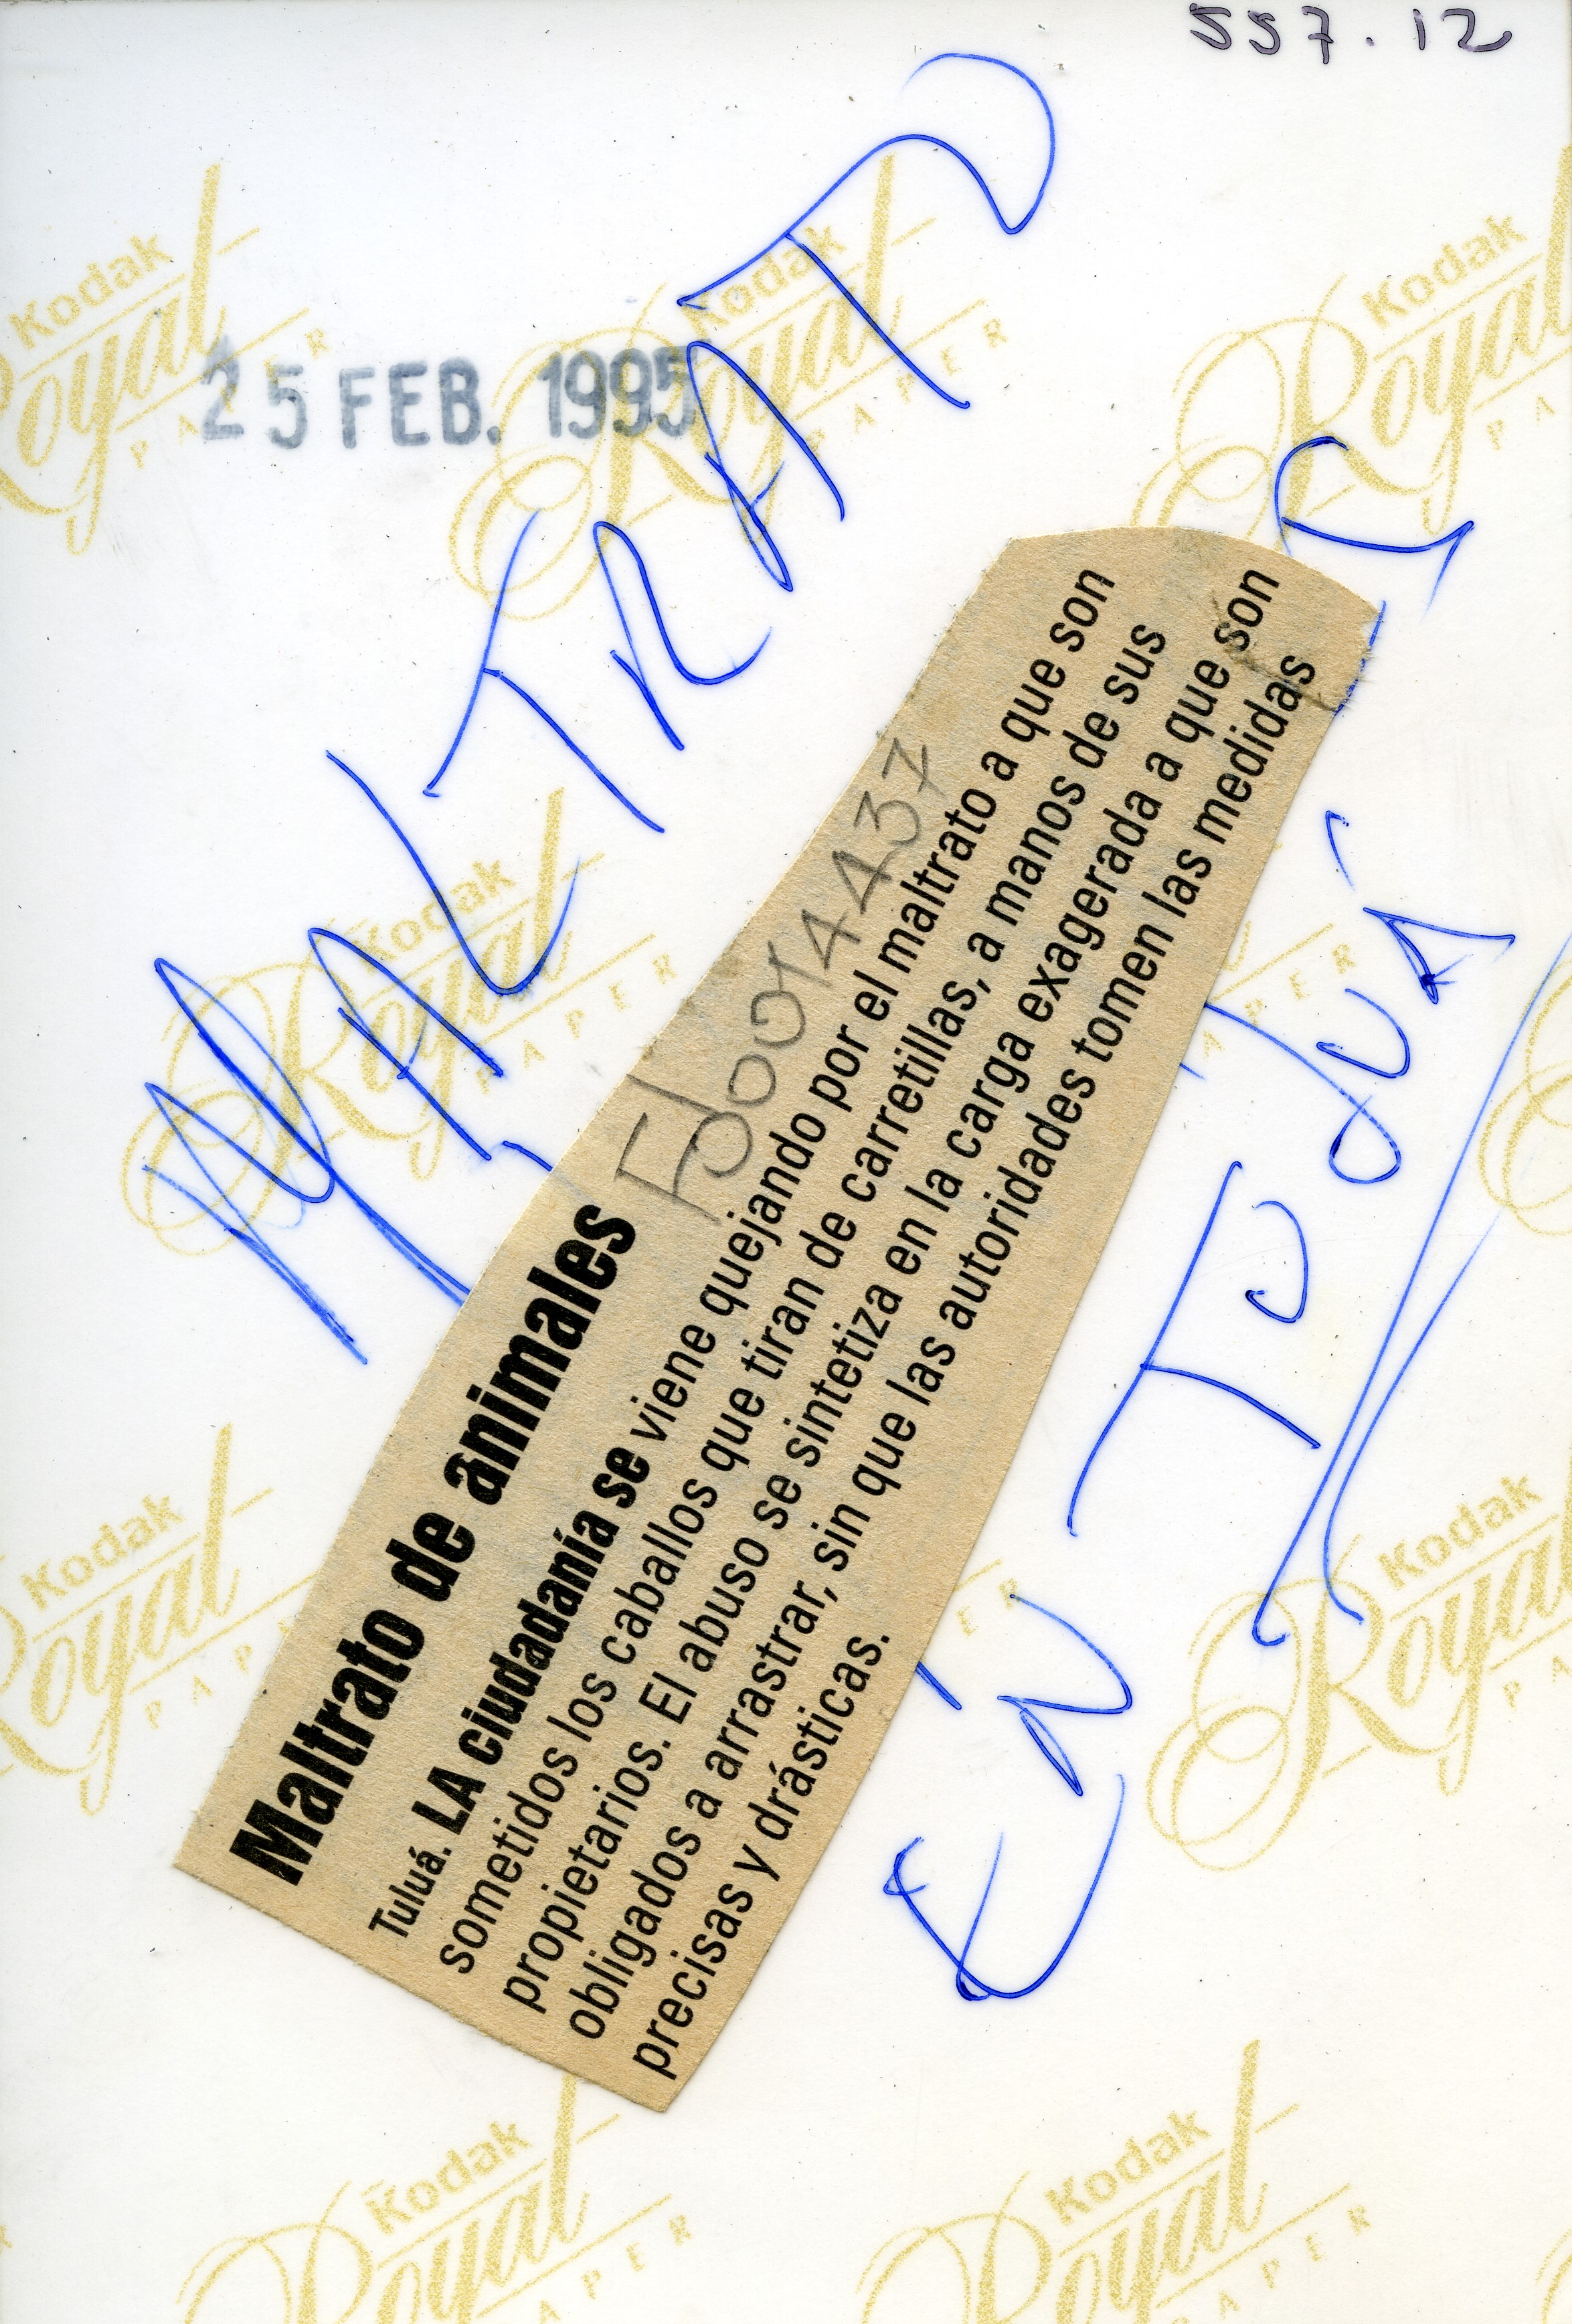 557.12
25 FEB. 1995
MALTRATO
Maltrato de animales
Fb0014437
Tuluá. LA ciudadanía se viene quejando por el maltrato a que son
sometidos los caballos que tiran de carretillas, a manos de sus
propietarios. El abuso se sintetiza en la carga exagerada a que son
obligados a arrastrar, sin que las autoridades tomen las medidas
precisas y drásticas.
EN TULUÁ
Kodak
Royal
PAPER
Kodak
Royal
PAPER
Kodak
Royal
PAPER
Kodak
Royal
PAPER
Kodak
Royal
PAPER
Kodak
Royal
PAPER
Kodak
Royal
PAPER
Kodak
Royal
PAPER